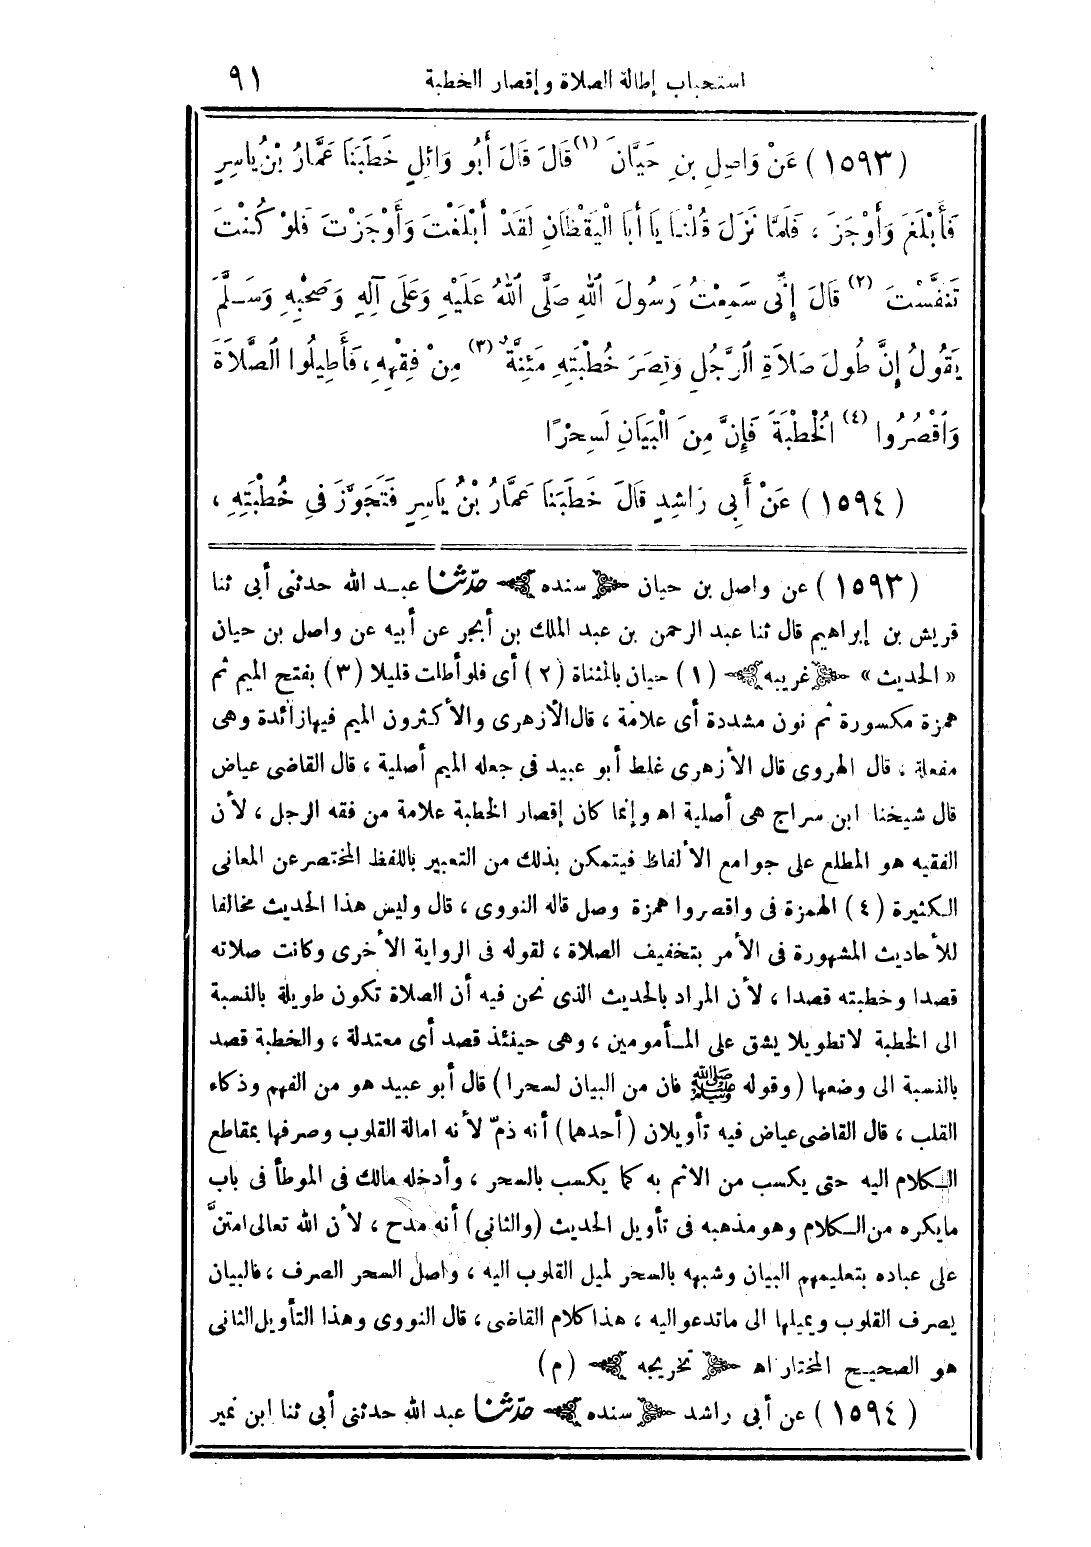 استحباب إطالة الصلاة وإقصار الخطبة ٩١
(١٥٩٣) عَنْ وَاصِلِ بنِ حَيَّانَ (١) قَالَ قَالَ أَبُو وَائِلٍ خَطَبَنَا عَمَّارُ بْنُ يَاسِرٍ
فَأَبْلَغَ وَأَوْجَزَ ، فَلَمَّا نَزَلَ قُلْنَا يَا أَبَا الْيَقْظَانِ لَقَدْ أَبْلَغْتَ وَأَوْجَزْتَ فَلَوْ كُنْتَ
تَنَفَّسْتَ (٢) قَالَ إِنِّى سَمِعْتُ رَسُولَ اللهِ صَلَّى اللهُ عَلَيْهِ وَعَلَى آلِهِ وَصَحْبِهِ وَسَلَّمَ
يَقُولُ إِنَّ طُولَ صَلَاةِ الرَّجُلِ وَقِصَرَ خُطْبَتِهِ مَئِنَّةٌ (٣) مِنْ فِقْهِهِ ، فَأَطِيلُوا الصَّلَاةَ
وَاقْصُرُوا (٤) الْخُطْبَةَ فَإِنَّ مِنَ الْبَيَانِ لَسِحْرًا
(١٥٩٤) عَنْ أَبِي رَاشِدٍ قَالَ خَطَبَنَا عَمَّارُ بْنُ يَاسِرٍ فَتَجَوَّزَ فِي خُطْبَتِهِ ،
(١٥٩٣) عن واصل بن حيان ﴿ سنده ﴾ حدّثنا عبد الله حدثنى أبى ثنا
قريش بن إبراهيم قال ثنا عبد الرحمن بن عبد الملك بن أبجر عن أبيه عن واصل بن حيان
« الحديث » ﴿ غريبه ﴾ (١) حيان بالمثناة (٢) أى فلو أطلت قليلا (٣) بفتح الميم ثم
همزة مكسورة ثم نون مشددة أى علامة ، قال الأزهرى والأكثرون الميم فيها زائدة وهى
مفعلة ، قال الهروى قال الأزهرى غلط أبو عبيد فى جعله الميم أصلية ، قال القاضى عياض
قال شيخنا ابن سراج هى أصلية اه وإنما كان إقصار الخطبة علامة من فقه الرجل ، لأن
الفقيه هو المطلع على جوامع الألفاظ فيتمكن بذلك من التعبير باللفظ المختصر عن المعانى
الكثيرة (٤) الهمزة فى واقصروا همزة وصل قاله النووى ، قال وليس هذا الحديث مخالفا
للأحاديث المشهورة فى الأمر بتخفيف الصلاة ، لقوله فى الرواية الأخرى وكانت صلاته
قصدا وخطبته قصدا ، لأن المراد بالحديث الذى نحن فيه أن الصلاة تكون طويلة بالنسبة
الى الخطبة لا تطويلا يشق على المأمومين ، وهى حينئذ قصد أى معتدلة ، والخطبة قصد
بالنسبة الى وضعها (وقوله ﷺ فان من البيان لسحرا) قال أبو عبيد هو من الفهم وذكاء
القلب ، قال القاضى عياض فيه تأويلان (أحدهما) أنه ذمّ لأنه امالة القلوب وصرفها بمقاطع
الكلام اليه حتى يكسب من الاثم به كما يكسب بالسحر ، وأدخله مالك فى الموطأ فى باب
ما يكره من الكلام وهو مذهبه فى تأويل الحديث (والثانى) أنه مدح ، لأن الله تعالى امتنَّ
على عباده بتعليمهم البيان وشبهه بالسحر لميل القلوب اليه ، وأصل السحر الصرف ، فالبيان
يصرف القلوب ويميلها الى ما تدعو اليه ، هذا كلام القاضى ، قال النووى وهذا التأويل الثانى
هو الصحيح المختار اه ﴿ تخريجه ﴾ (م)
(١٥٩٤) عن أبى راشد ﴿ سنده ﴾ حدّثنا عبد الله حدثنى أبى ثنا ابن نمير